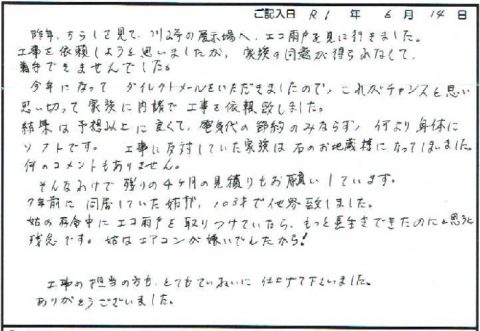 ご記入日 R1 年 6 月 14 日
昨年、ちらしを見て、川口の展示場へ、エコ雨戸を見に行きました。
工事を依頼しようと思いましたが、家族の同意が得られなくて、
着手できませんでした。
今年になって ダイレクトメールをいただきましたので、これがチャンスと思い
思い切って家族に内緒で工事を依頼致しました。
結果は予想以上に良くて、電気代の節約のみならず、何より身体に
ソフトです。 工事に反対していた家族は石のお地蔵様になってしまいました。
何のコメントもありません。
そんなわけで残りの4ヶ所の見積りもお願いしています。
7年前に同居していた姑が、103才で他界致しました。
姑の存命中にエコ雨戸を取りつけていたら、もっと長生きできたのにと思うと
残念です。姑はエアコンが嫌いでしたから!
工事の担当の方も、とてもていねいに仕上げて下さいました。
ありがとうございました。